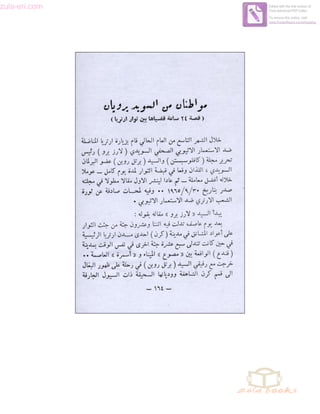 zula-eri.com
Edited with the trial version of
Foxit Advanced PDF Editor
To remove this notice, visit:
www.foxitsoftware.com/shopping
مواطنان من السويد يرويان
( قصة ٢٤ ساعة قضياها بين ثوار ارتريا )
خلال الشهر التاسع من العام الحالي قام بزيارة ارتريا المناضلة
ضد الاستعمار الاثيوبي الصحفي السويدي ( لارز برو ) رئيس
تحرير مجلة ( كافلوسيستن ) والسيد ( برتل روبن ) عضو البرلمان
السويدي ، اللذان وقعا في قبضة الثوار لمدة يوم كامل ــ عوملا
خلاله أفضل معاملة ــ ثم عادا لينشر الاول مقالا مطولا في مجلته
صدر بتاريخ ١٩٦٥/٩/٣٠ وفيه لمحات صادقة عن ثورة
الشعب الارتري ضد الاستعمار الاثيوبي .
يبدأ السيد « لارز برو » مقاله بقوله :
بعد يوم عاصف تدلت فيه اثنتا وعشرون جثة من جثث الثوار
على أعواد المشانق في مدينة ( كرن ) احدى مدن ارتريا الرئيسية
في حين كانت تتدلى سبع عشرة جثة اخرى في نفس الوقت بمدينة
( قندع ) الواقعة بين « مصوع » الميناء و « أسمرة » العاصمة ٠٠
خرجت مع رفيقي السيد ( برتل روبن ) في رحلة على ظهور البغال
الى قمم كرن الشاهقة ووديانها السحيقة ذات السيول الجارفة
ــ ١٦٤ ــ
zula books